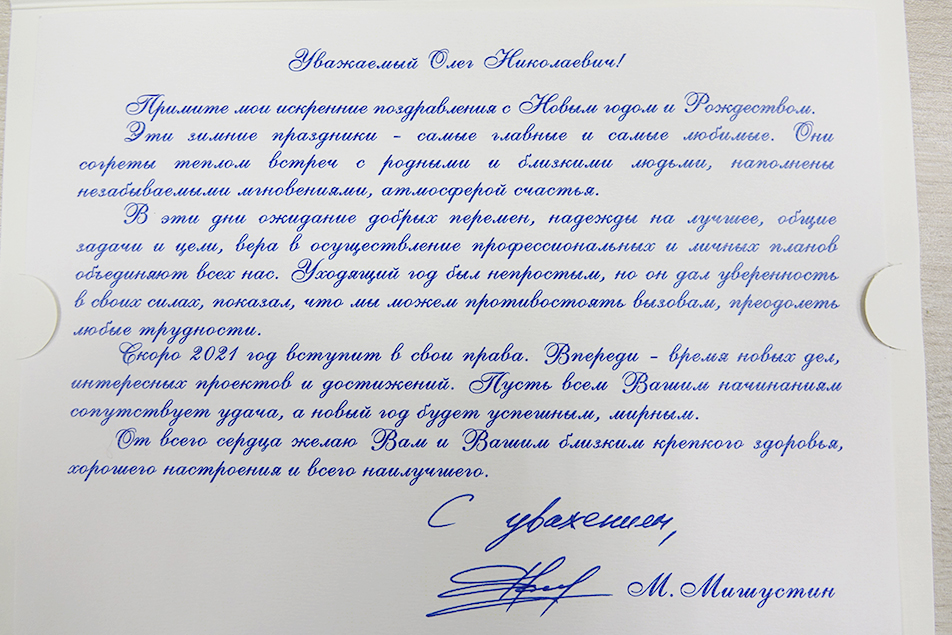 Уважаемый Олег Николаевич!
Примите мои искренние поздравления с Новым годом и Рождеством.
Эти зимние праздники – самые главные и самые любимые. Они
согреты теплом встреч с родными и близкими людьми, наполнены
незабываемыми мгновениями, атмосферой счастья.
В эти дни ожидание добрых перемен, надежды на лучшее, общие
задачи и цели, вера в осуществление профессиональных и личных планов
объединяют всех нас. Уходящий год был непростым, но он дал уверенность
в своих силах, показал, что мы можем противостоять вызовам, преодолеть
любые трудности.
Скоро 2021 год вступит в свои права. Впереди – время новых дел,
интересных проектов и достижений. Пусть всем Вашим начинаниям
сопутствует удача, а новый год будет успешным, мирным.
От всего сердца желаю Вам и Вашим близким крепкого здоровья,
хорошего настроения и всего наилучшего.
С уважением,
М. Мишустин